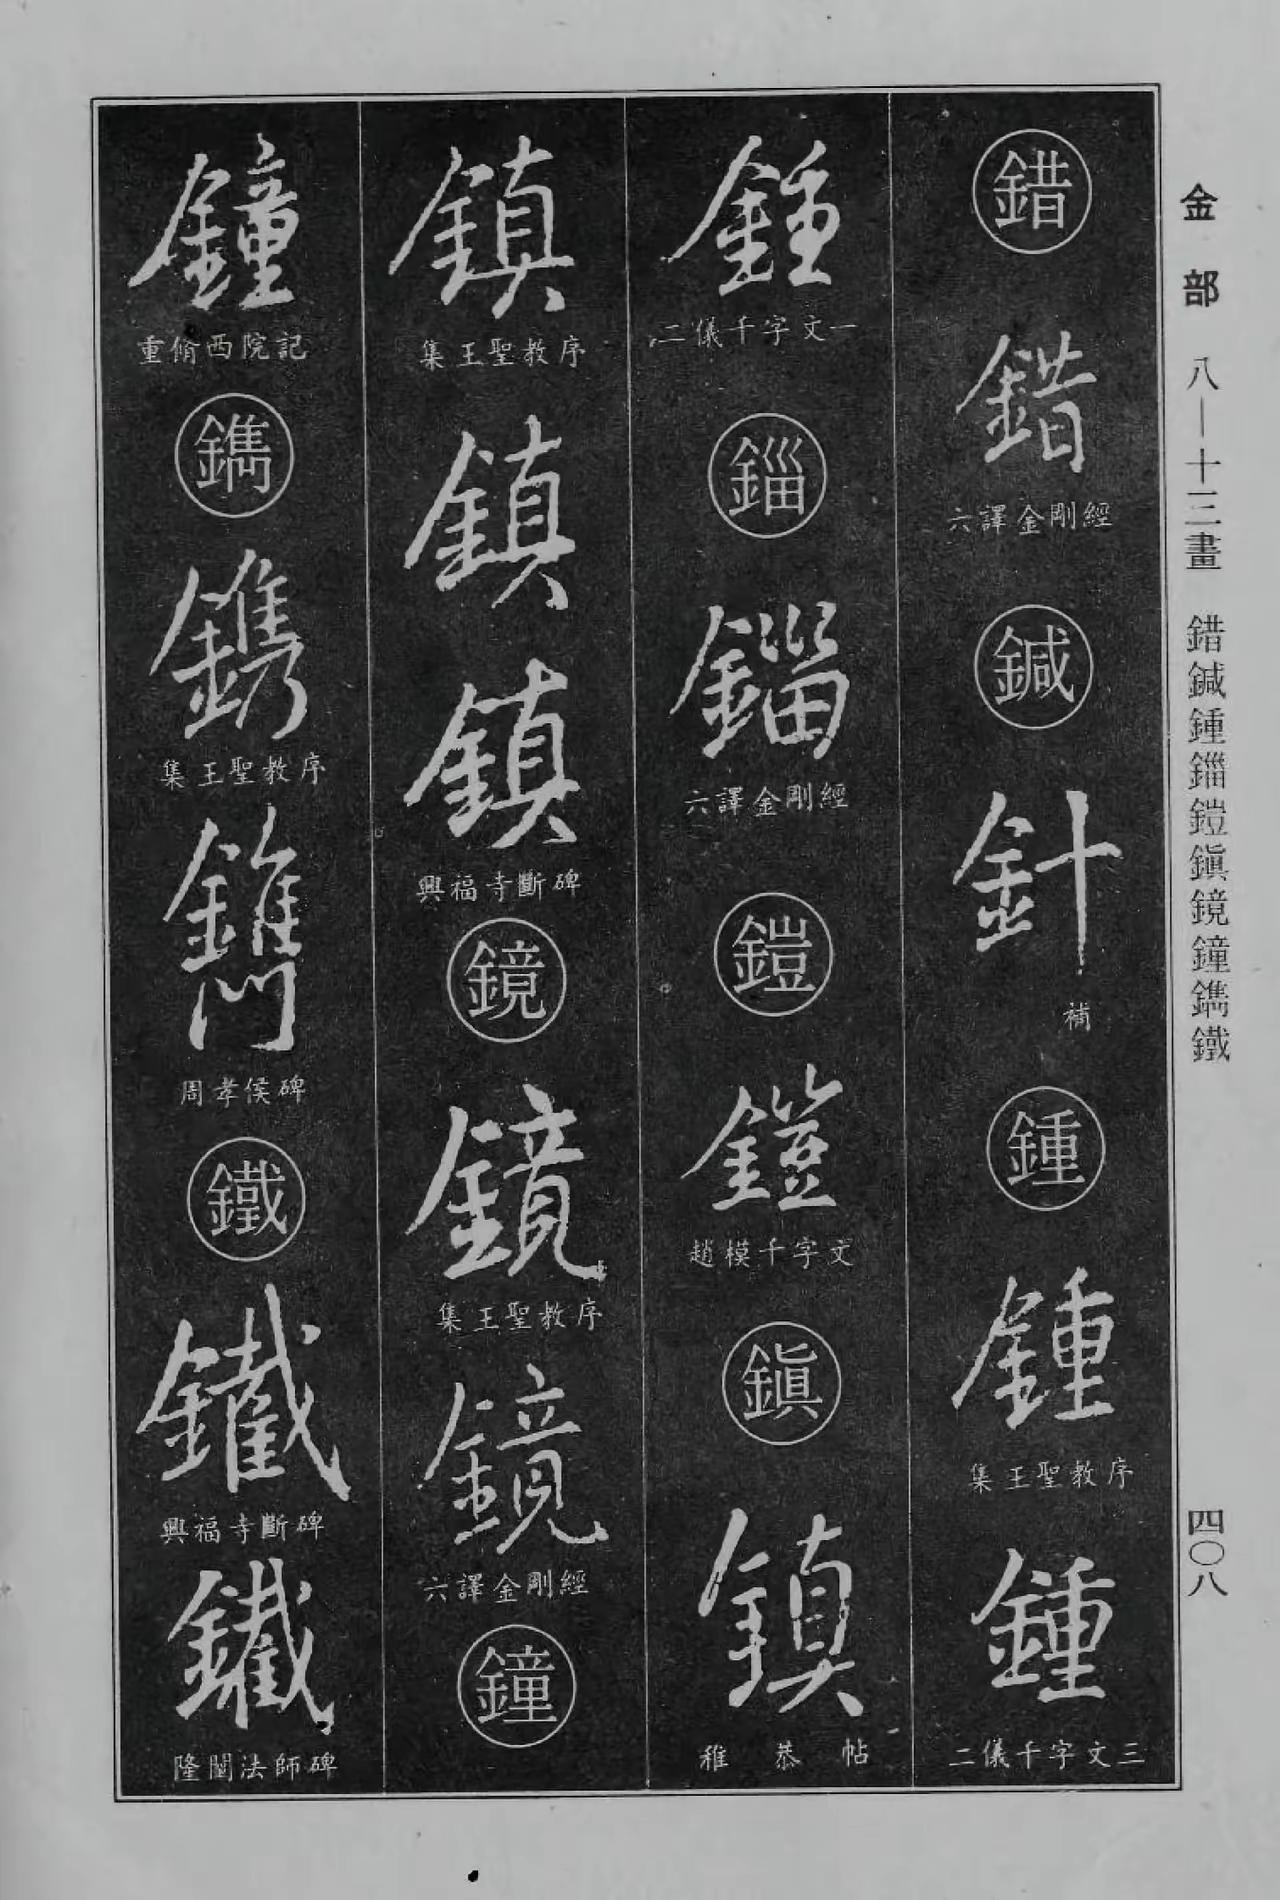 金部 八—十三畫 錯鍼鍾錙鎧鎭鏡鐘鐫鐵
四〇八
錯
錯
六譯金剛經
鍼
針
補
鍾
鍾
集王聖教序
鍾
二儀千字文三
鍾
二儀千字文一
錙
錙
六譯金剛經
鎧
鎧
趙模千字文
鎭
鎮
稚恭帖
鎮
集王聖教序
鎮
鎮
興福寺斷碑
鏡
鏡
集王聖教序
鏡
六譯金剛經
鐘
鐘
重脩西院記
鐫
鐫
集王聖教序
鐫
周孝侯碑
鐵
鐵
興福寺斷碑
鐵
隆闡法師碑